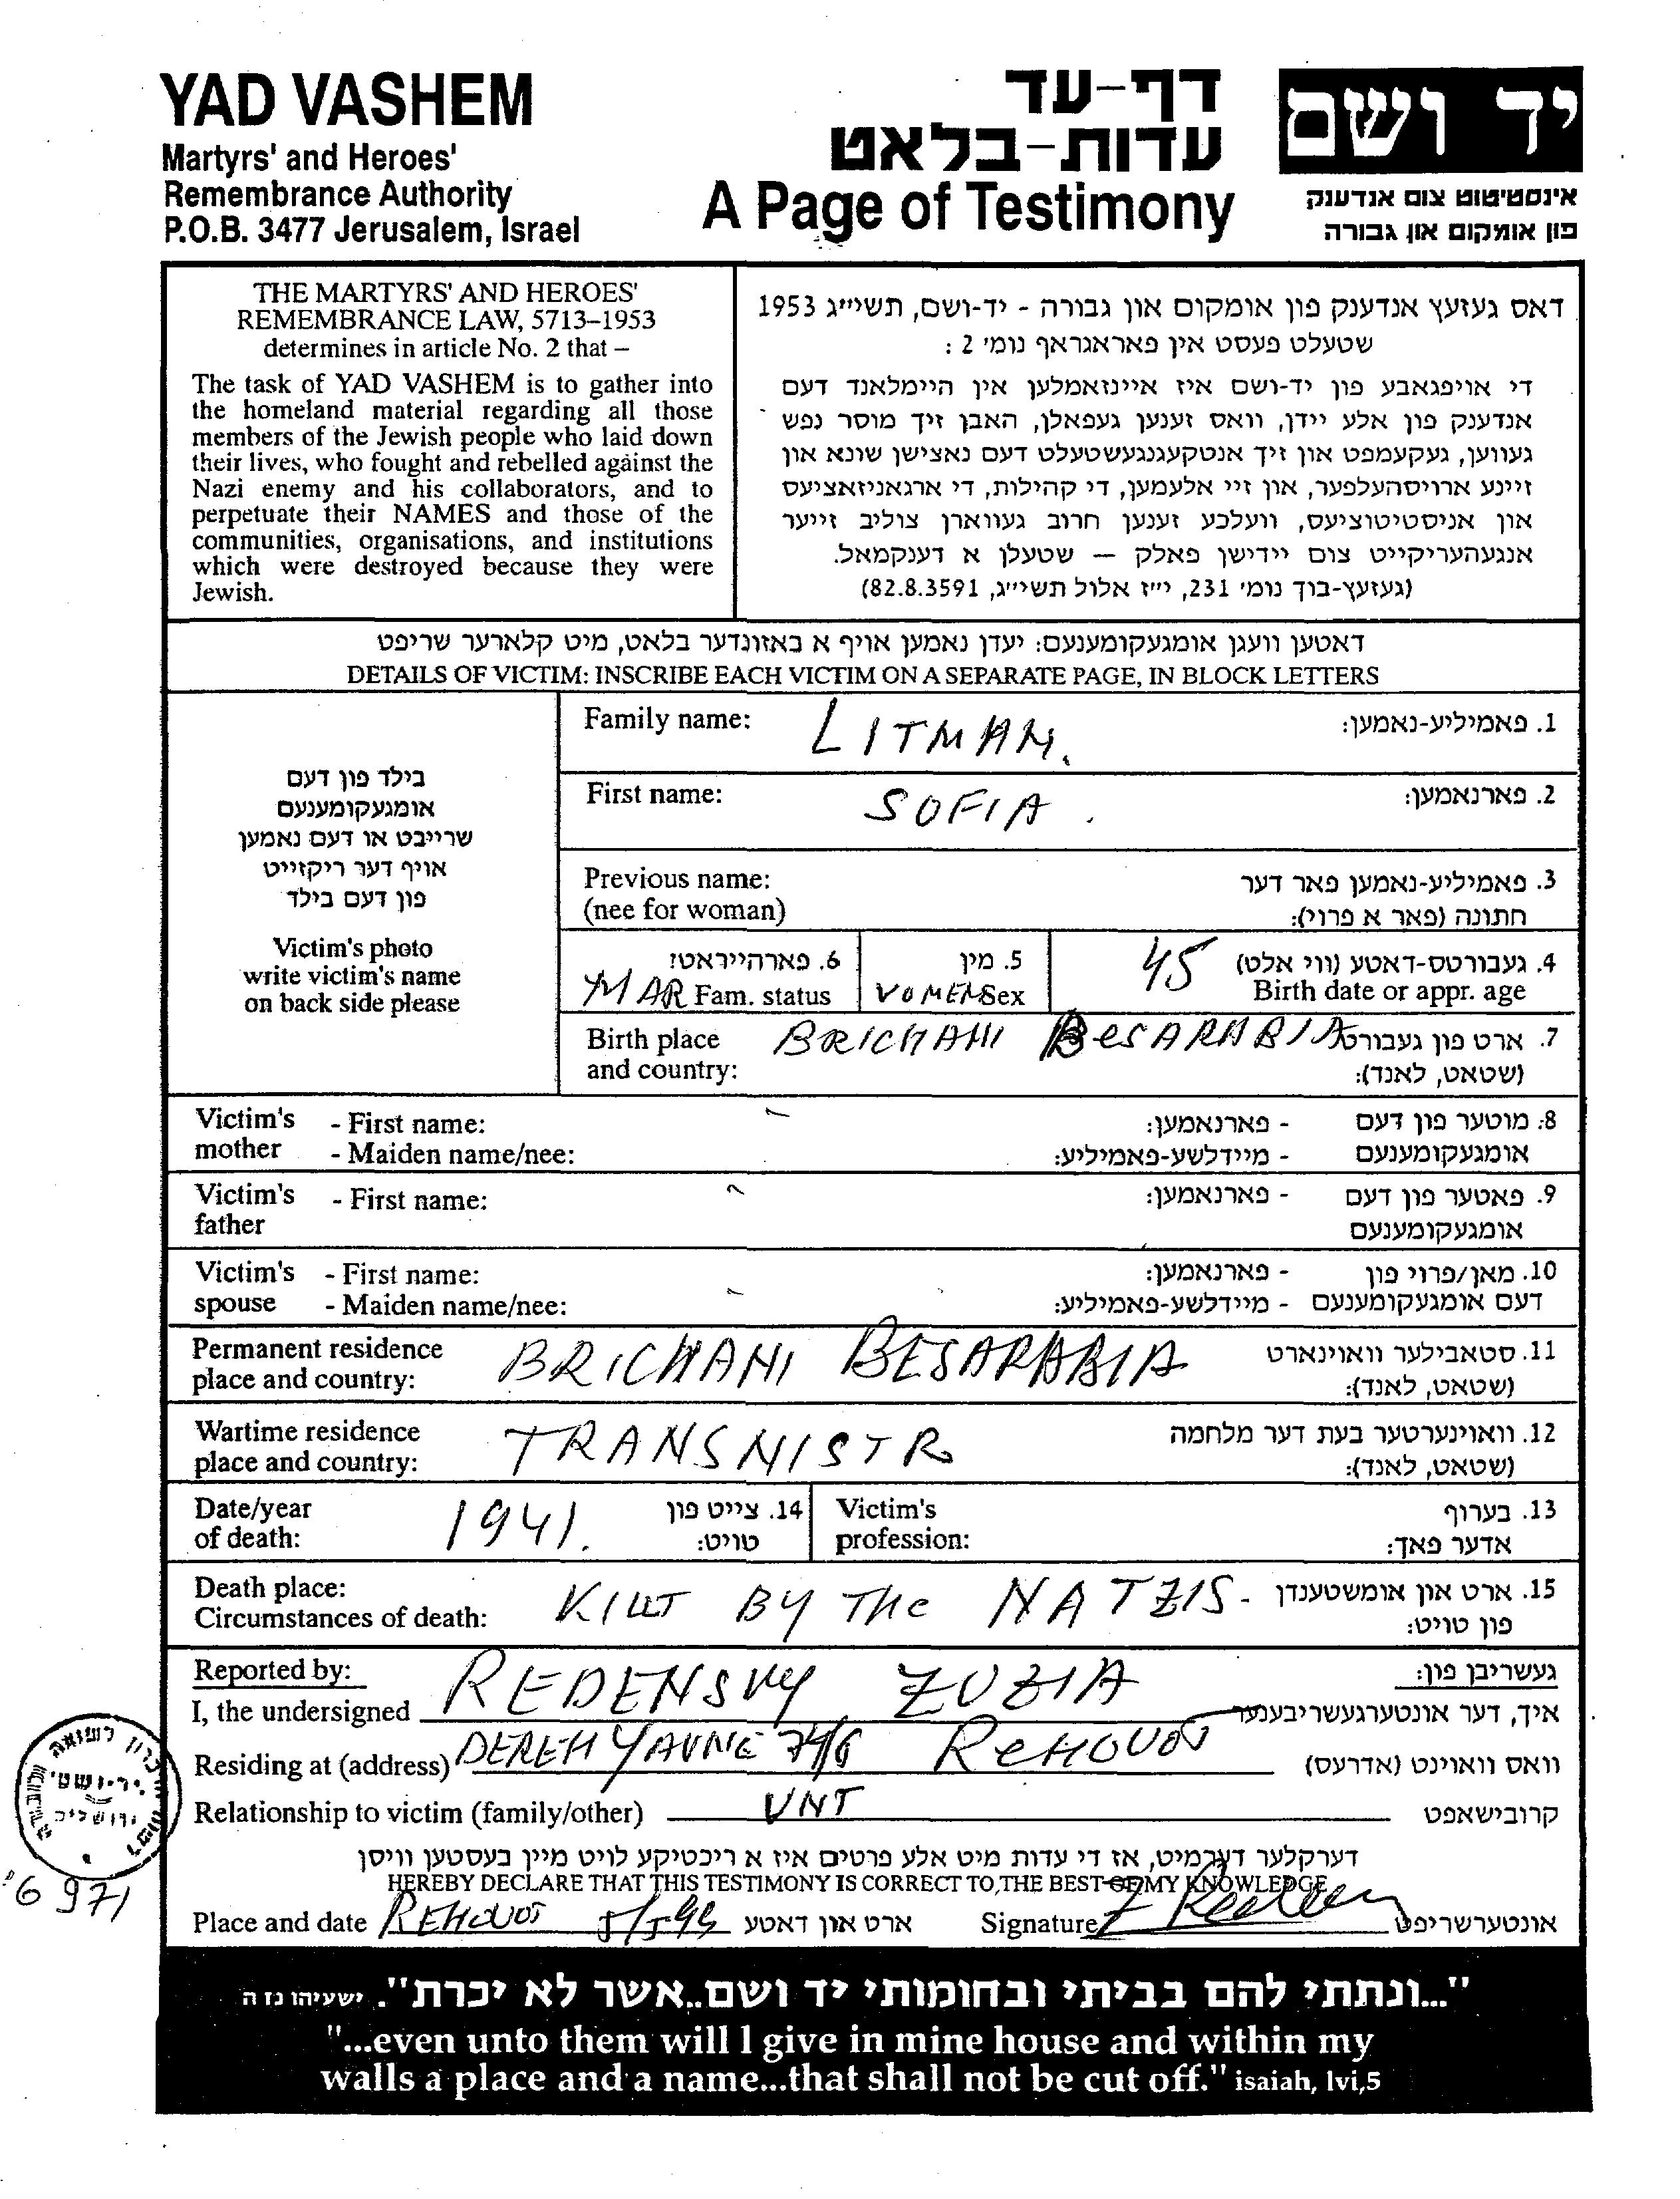 YAD VASHEM
Martyrs' and Heroes'
Remembrance Authority
P.O.B. 3477 Jerusalem, Israel
דף-עד
עדות-בלאט
A Page of Testimony
יד ושם
אינסטיטוט צום אנדענק
פון אומקום און גבורה
THE MARTYRS' AND HEROES'
REMEMBRANCE LAW, 5713–1953
determines in article No. 2 that –
The task of YAD VASHEM is to gather into
the homeland material regarding all those
members of the Jewish people who laid down
their lives, who fought and rebelled against the
Nazi enemy and his collaborators, and to
perpetuate their NAMES and those of the
communities, organisations, and institutions
which were destroyed because they were
Jewish.
דאס געזעץ אנדענק פון אומקום און גבורה - יד-ושם, תשי״ג 1953
שטעלט פעסט אין פאראגראף נומי 2 :
די אויפגאבע פון יד-ושם איז איינזאמלען אין היימלאנד דעם
אנדענק פון אלע יידן, וואס זענען געפאלן, האבן זיך מוסר נפש
געווען, געקעמפט און זיך אנטקעגנגעשטעלט דעם נאצישן שונא און
זיינע ארויסהעלפער, און זיי אלעמען, די קהילות, די ארגאניזאציעס
און אניסטיטוציעס, וועלכע זענען חרוב געווארן צוליב זייער
אנגעהעריקייט צום יידישן פאלק — שטעלן א דענקמאל.
(געזעץ-בוך נומי 231, י״ז אלול תשי״ג, 82.8.3591)
דאטען וועגן אומגעקומענעם: יעדן נאמען אויף א באזונדער בלאט, מיט קלארער שריפט
DETAILS OF VICTIM: INSCRIBE EACH VICTIM ON A SEPARATE PAGE, IN BLOCK LETTERS
בילד פון דעם
אומגעקומענעם
שרייבט או דעם נאמען
אויף דער ריקזייט
פון דעם בילד
Victim's photo
write victim's name
on back side please
Family name: LITMAN. 1. פאמיליע-נאמען:
First name: SOFIA. 2. פארנאמען:
Previous name: 3. פאמיליע-נאמען פאר דער
(nee for woman) חתונה (פאר א פרוי):
6. פארהייראט? 5. מין 45 4. געבורטס-דאטע (ווי אלט)
MAR Fam. status VOMEN Sex Birth date or appr. age
Birth place BRICHANI BESARABIA 7. ארט פון געבורט
and country: (שטאט, לאנד):
Victim's - First name: - פארנאמען: 8. מוטער פון דעם
mother - Maiden name/nee: - מיידלשע-פאמיליע: אומגעקומענעם
Victim's - First name: - פארנאמען: 9. פאטער פון דעם
father אומגעקומענעם
Victim's - First name: - פארנאמען: 10. מאן/פרוי פון
spouse - Maiden name/nee: - מיידלשע-פאמיליע: דעם אומגעקומענעם
Permanent residence BRICHANI BESARABIA 11. סטאבילער וואוינארט
place and country: (שטאט, לאנד):
Wartime residence TRANSNISTR 12. וואוינערטער בעת דער מלחמה
place and country: (שטאט, לאנד):
Date/year 1941. 14. צייט פון Victim's 13. בערוף
of death: טויט: profession: אדער פאך:
Death place: KILLT BY THE NATZIS- 15. ארט און אומשטענדן
Circumstances of death: פון טויט:
Reported by: REDENSKY ZUZIA געשריבן פון:
I, the undersigned איך, דער אונטערגעשריבענער
Residing at (address) DEREH YAVNE 74/6 REHOVOT וואס וואוינט (אדרעס)
Relationship to victim (family/other) UNT קרובישאפט
דערקלער דערמיט, אז די עדות מיט אלע פרטים איז א ריכטיקע לויט מיין בעסטען וויסן
HEREBY DECLARE THAT THIS TESTIMONY IS CORRECT TO THE BEST OF MY KNOWLEDGE
Place and date REHOVOT ארט און דאטע Signature אונטערשריפט
"...ונתתי להם בביתי ובחומותי יד ושם..אשר לא יכרת". ישעיהו נז ה
"...even unto them will I give in mine house and within my
walls a place and a name...that shall not be cut off." isaiah, lvi,5